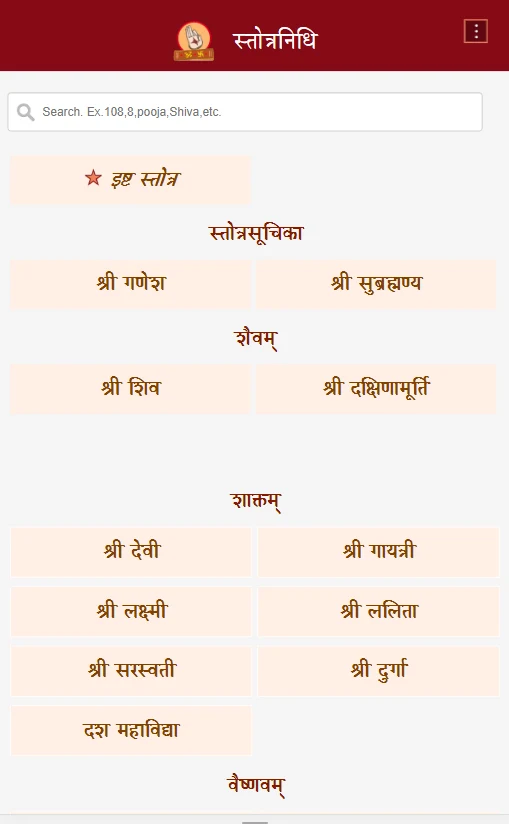 स्तोत्रनिधि
Search. Ex.108,8,pooja,Shiva,etc.
इष्ट स्तोत्र
स्तोत्रसूचिका
श्री गणेश
श्री सुब्रह्मण्य
शैवम्
श्री शिव
श्री दक्षिणामूर्ति
शाक्तम्
श्री देवी
श्री गायत्री
श्री लक्ष्मी
श्री ललिता
श्री सरस्वती
श्री दुर्गा
दश महाविद्या
वैष्णवम्